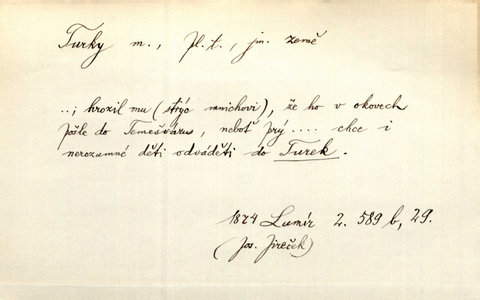 Turky m., pl. t., jm. země
..; hrozil mu (strýc mnichovi), že ho v okovech
pošle do Temešváru, neboť prý .... chce i
nerozumné děti odváděti do Turek.
1874 Lumír 2. 589 b, 29.
(Jos. Jireček)